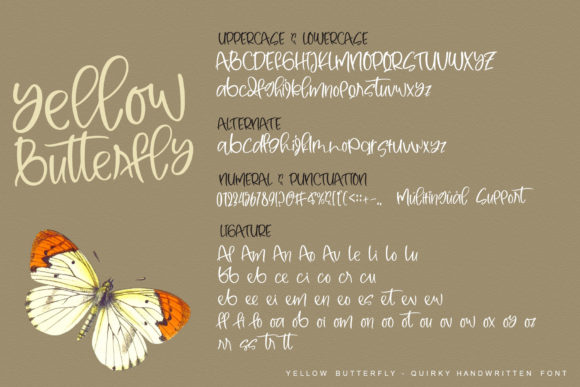 Yellow
Butterfly
UPPERCASE & LOWERCASE
ABCDEFGHIJKLMNOPQRSTUVWXYZ
abcdefghijklmnopqrstuvwxyz
ALTERNATE
abcdefghijklmnopqrstuvwxyz
NUMERAL & PUNCTUATION
0123456789 Multilingual Support
LIGATURE
Af Am An Ao Av le li lo lu
bb eb ce ci co cr cu
eb ee ei em en eo es et ev ew
ff fi fo oa ob oi om on oo ot ou ov ow ox oy oz
rr ss tr tt
YELLOW BUTTERFLY - QUIRKY HANDWRITTEN FONT